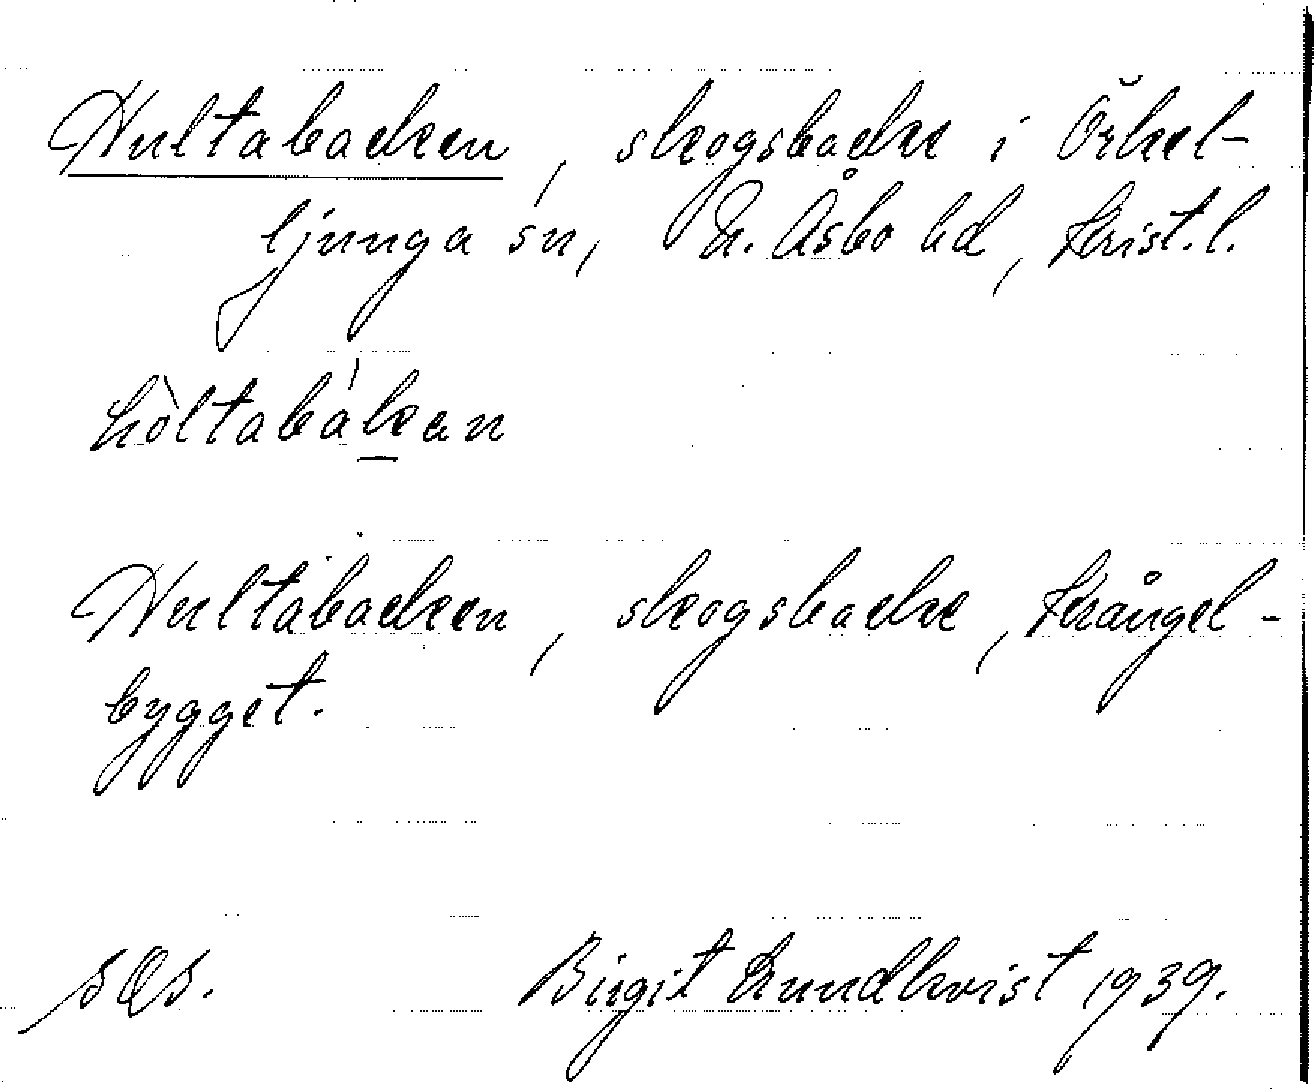 Hultabacken, skogsbacke i Örkel-
ljunga sn, N. Åsbo hd, Krist. l.
hòltabákan
Hultabacken, skogsbacke, Krångel-
bygget.
SOS. Birgit Lundkvist 1939.